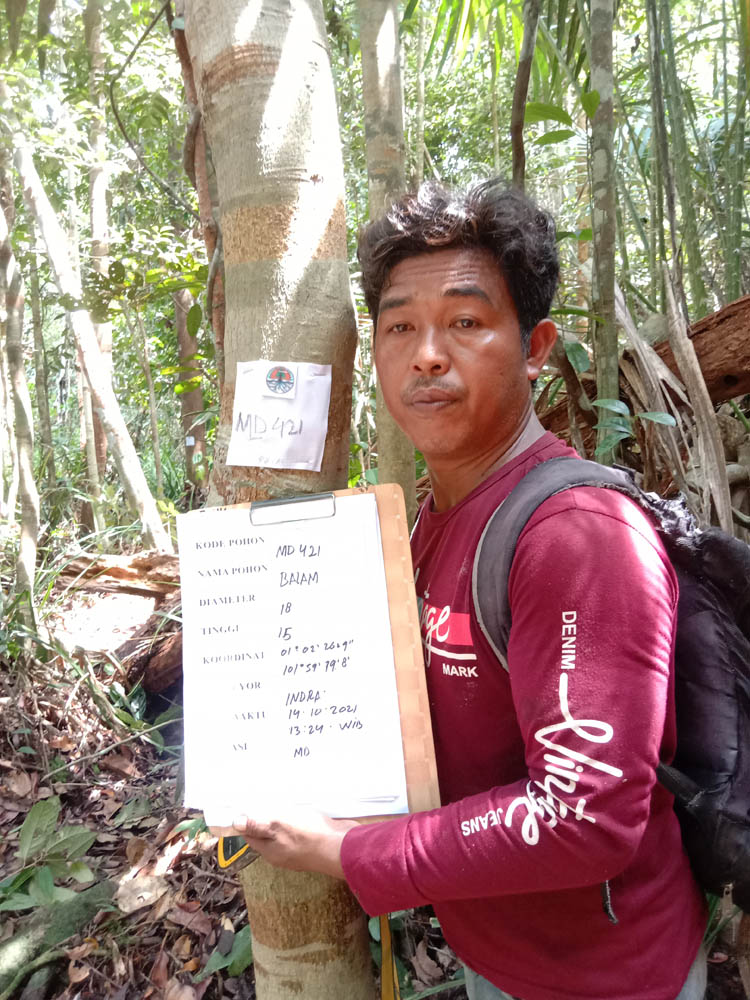 MD 421
KODE POHON MD 421
NAMA POHON BALAM
DIAMETER 18
TINGGI 15
KOORDINAT 01° 02' 26.9"
101° 59' 79.8'
YOR INDRA.
AKTU 14.10.2021
13:24. WIB
ASI MD
MARK
DENIM
Vintage
JEANS